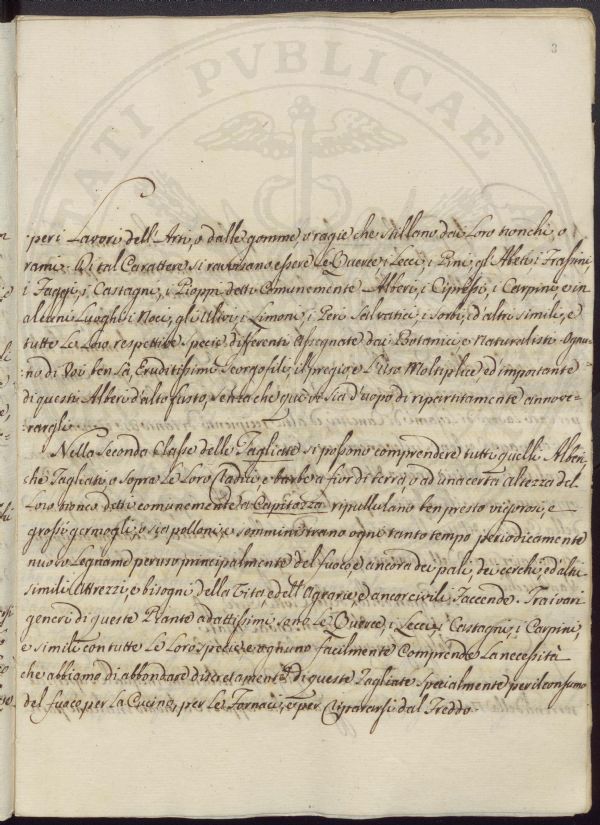 3
TATI PVBLICAE
per i Lavori dell'Arti, o dalle gomme, o ragie che stillano dai Loro tronchi, o
rami: Di tal Carattere si ravvisano essere Le Querce, i Lecci, i Pini, gl'Abeti, i Frassini
i Faggi, i Castagni, i Pioppi detti Comunemente Alberi, i Cipressi, i Carpini, e in
alcuni Luoghi i Noci, gli Ulivi, i Limoni, i Peri Salvatici, i Sorbi, ed altri simili, e
tutte Le Loro respettive Specie differenti Assegnate dai Botanici, e Naturalisti. Ognu-
no di Voi ben sà, Eruditissimi Georgofili, il pregio, e L'uso Moltiplice, ed importante
di questi Alberi d'alto fusto, senza che qui vi sia d'uopo di ripartitamente annove-
rargli.
Nella Seconda Classe delle Tagliate si possono comprendere tutti quelli Alberi,
che Tagliati, o sopra Le Loro Radici e barbe a fior di terra, o ad una certa altezza del
Loro tronco detti comunemente a Capitozza ripullulano ben presto vigorosi, e
grossi germogli, o sia polloni, e somministrano ogni tanto tempo periodicamente
nuovo Legname per uso principalmente del fuoco, e ancora dei pali, dei cerchi, ed altri
simili Attrezzi, e bisogni della Vita, e dell'Agrarie, e ancor civili Faccende. Tra i vari
generi di queste Piante adattissimi sono Le Querce, i Lecci, i Castagni, i Carpini,
e simili con tutte Le Loro specie; e ognuno facilmente Comprende La necessità
che abbiamo di abbondare discretamente di queste Tagliate specialmente per il consumo
del fuoco per La Cucina, per Le Fornaci, e per Ripararsi dal Freddo.